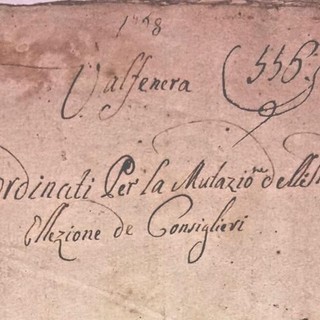 Valfenera
556
Ordinati Per la Mutazio.ne
Ellezione de Consiglieri